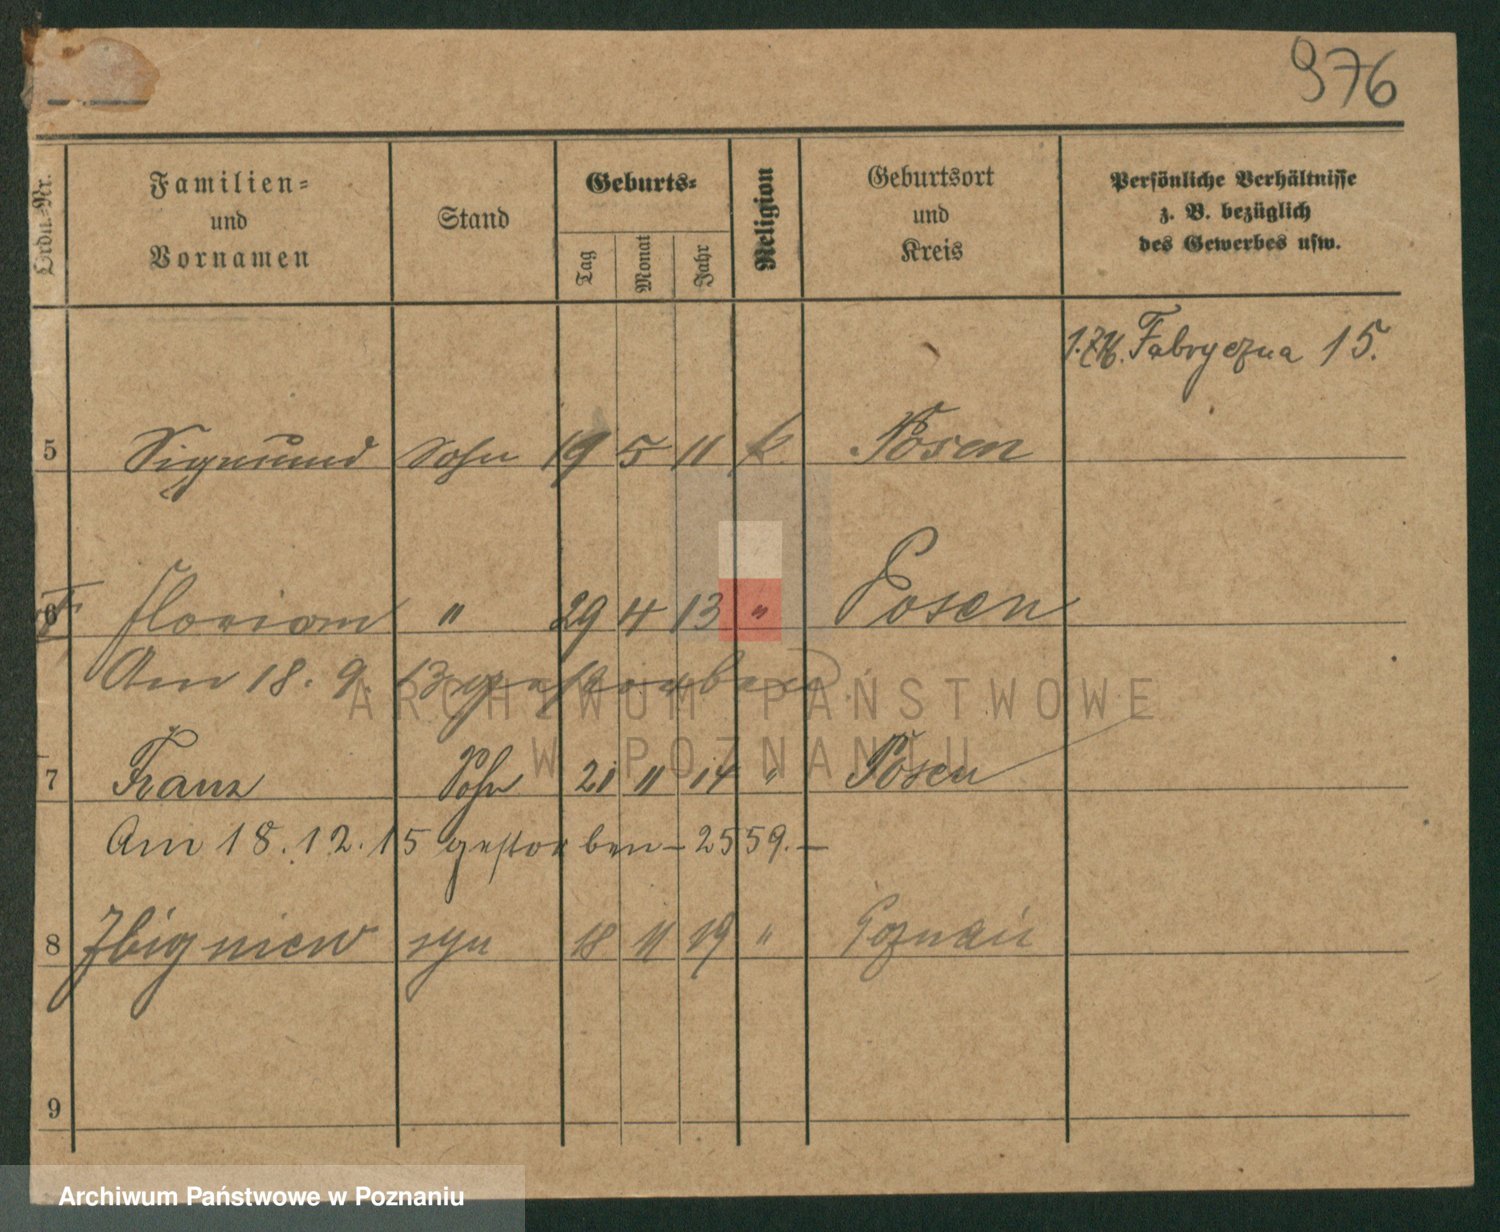 976
Ordn.-Nr.
Familien-
und
Vornamen
Stand
Geburts-
Tag
Monat
Jahr
Religion
Geburtsort
und
Kreis
Persönliche Verhältnisse
z. B. bezüglich
des Gewerbes usw.
Fabryczna 15.
5 Sigmund Sohn 19 5 11 k. Posen
6 Florian " 29 4 13 " Posen
Am 18. 9. 13 gestorben.
7 Franz Sohn 21 11 14 " Posen
Am 18. 12. 15 gestorben - 2559. -
8 Zbigniew syn 18 11 19 " Poznań
9
ARCHIWUM PAŃSTWOWE
W POZNANIU
Archiwum Państwowe w Poznaniu